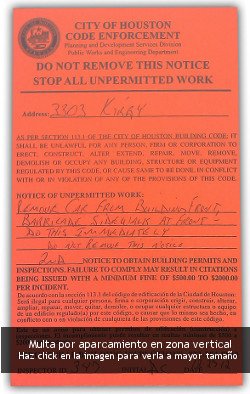 CITY OF HOUSTON
CODE ENFORCEMENT
Planning and Development Services Division
Public Works and Engineering Department
DO NOT REMOVE THIS NOTICE
STOP ALL UNPERMITTED WORK
Address: 3303 KIRBY
AS PER SECTION 113.1 OF THE CITY OF HOUSTON BUILDING CODE: IT
SHALL BE UNLAWFUL FOR ANY PERSON, FIRM OR CORPORATION TO
DIRECT, CONSTRUCT, ALTER EXTEND, REPAIR, MOVE, REMOVE,
DEMOLISH OR OCCUPY ANY BUILDING, STRUCTURE OR EQUIPMENT
REGULATED BY THIS CODE, OR CAUSE SAME TO BE DONE, IN CONFLICT
WITH OR IN VIOLATION OF ANY OF THE PROVISIONS OF THIS CODE.
NOTICE OF UNPERMITTED WORK:
REMOVE CAR FROM BUILDING FRONT,
BARRICADE SIDEWALK AT FRONT -
DO THIS IMMEDIATELY
DO NOT REMOVE THIS NOTICE
2ND NOTICE TO OBTAIN BUILDING PERMITS AND
INSPECTIONS. FAILURE TO COMPLY MAY RESULT IN CITATIONS
BEING ISSUED WITH A MINIMUM FINE OF $500.00 TO $2000.00
PER INCIDENT.
De acuerdo con la sección 113.1 del código de edificación de la Ciudad de Houston:
Será ilegal para cualquier persona, firma o corporación erigir, construir, alterar,
Multa por aparcamiento en zona vertical
Haz click en la imagen para verla a mayor tamaño